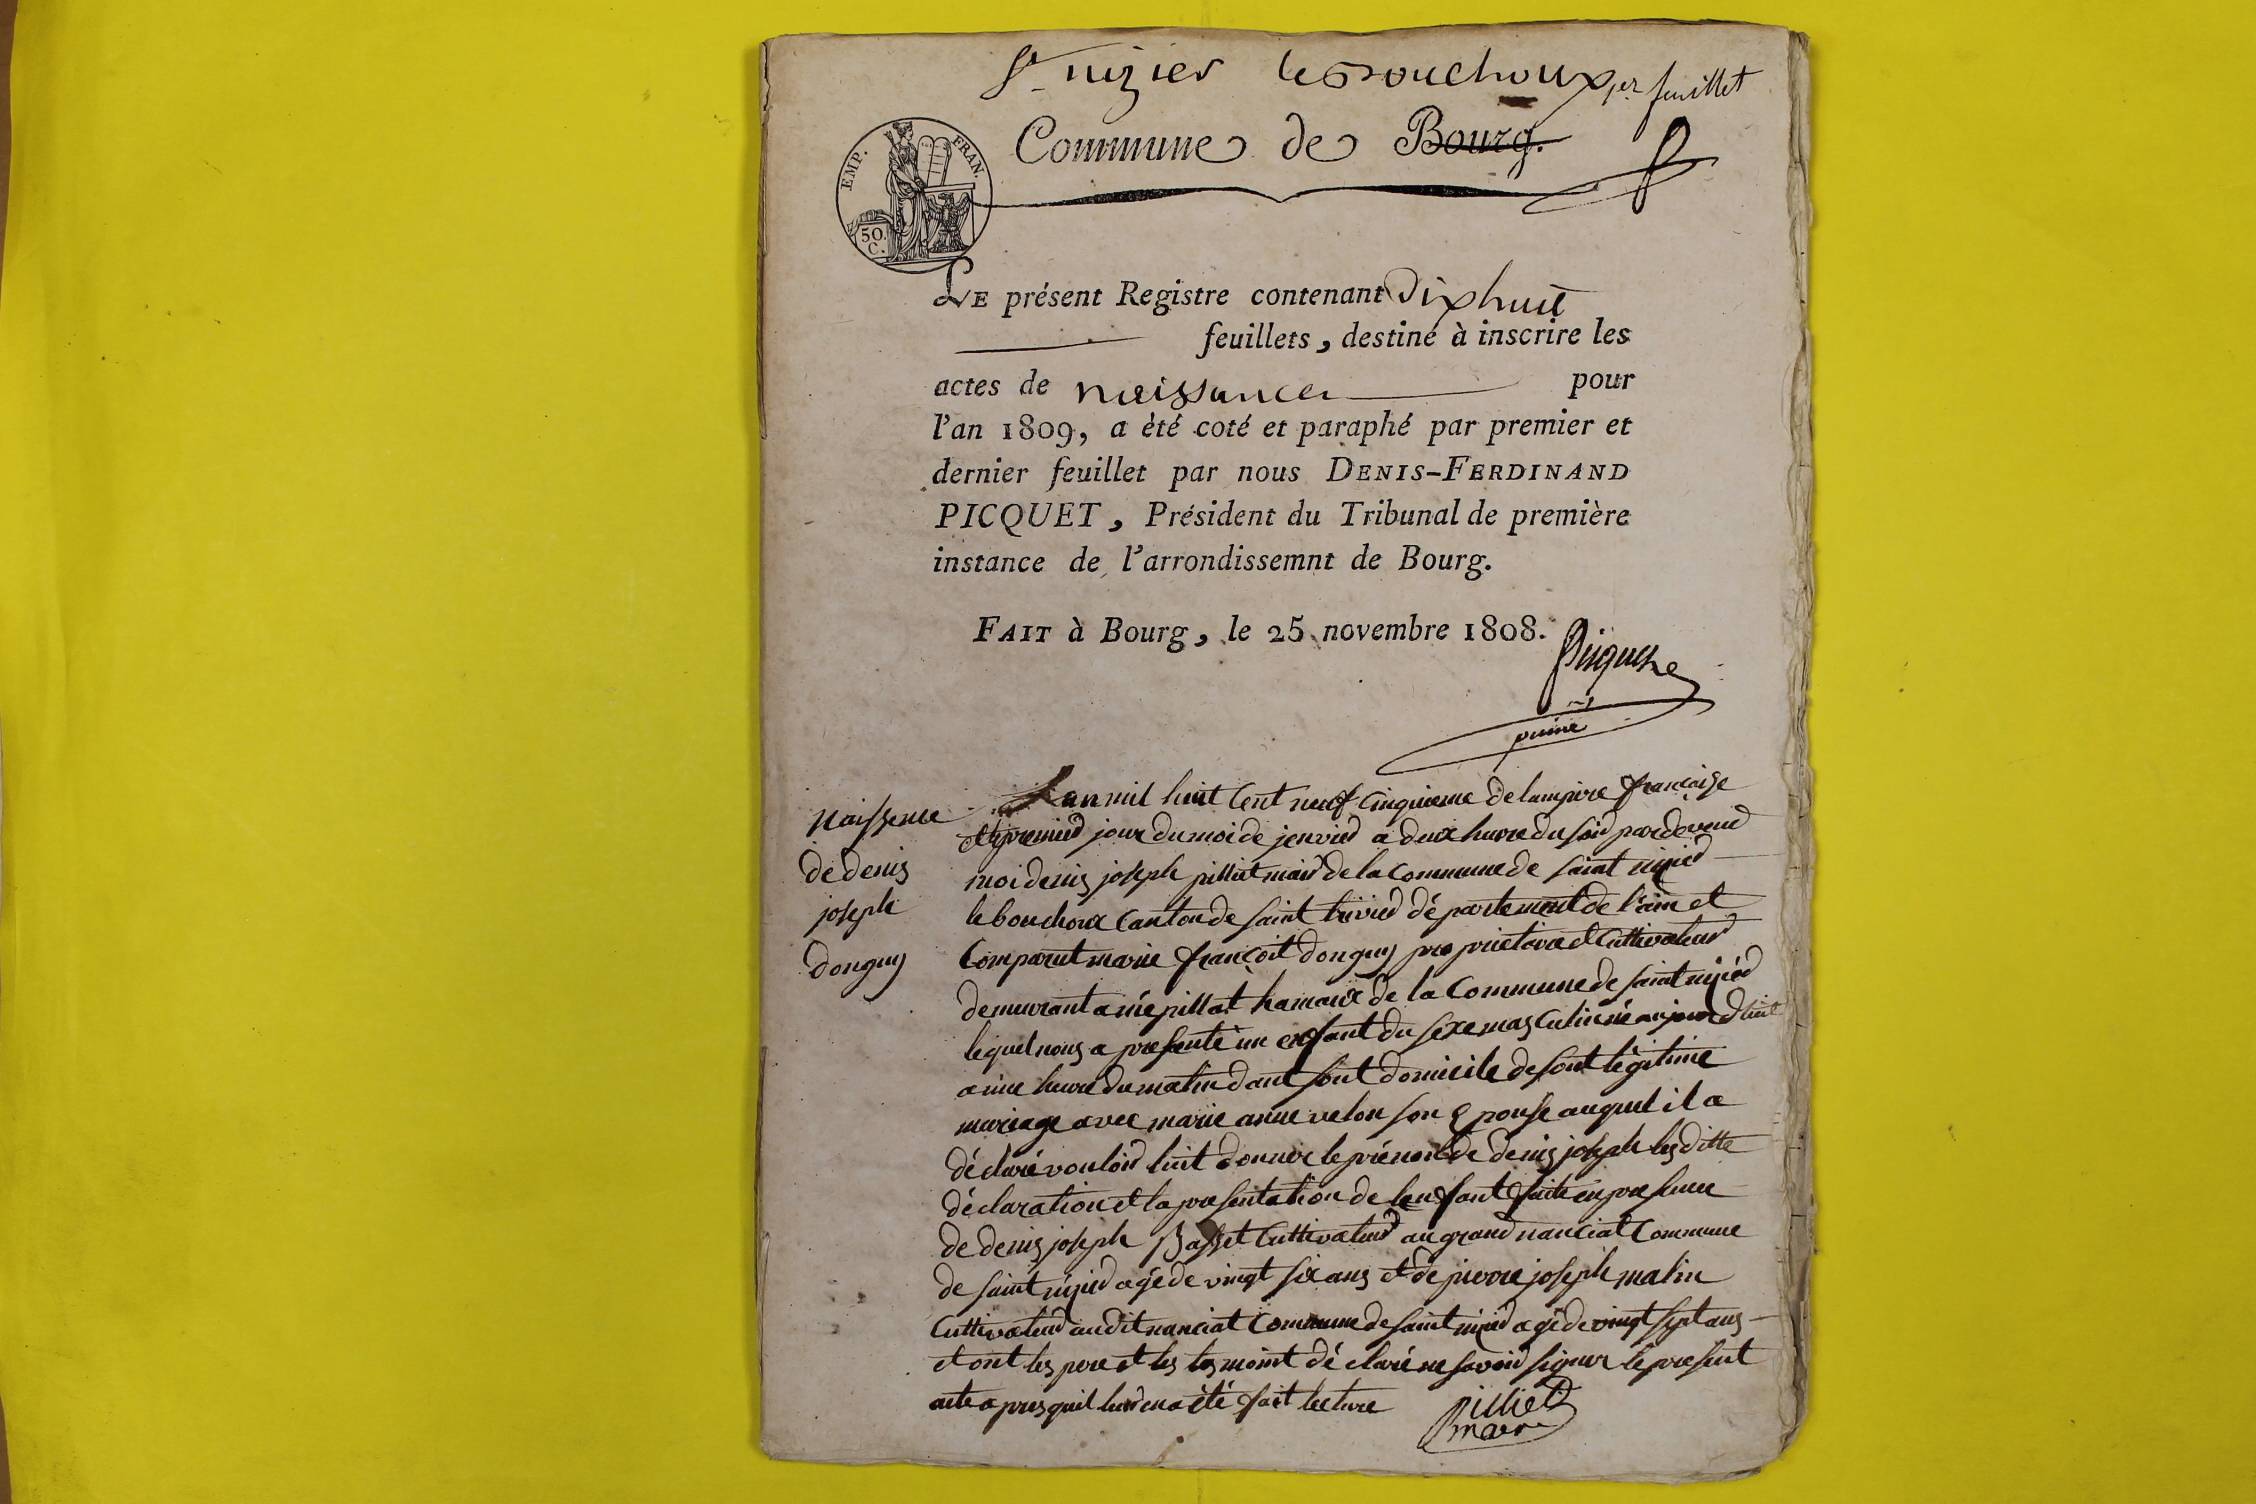 St nizier le Bouchoux 1er feuillet
EMP. FRAN.
50 C.
Commune de Bourg.
LE présent Registre contenant Dix huit
feuillets, destiné à inscrire les
actes de naissances pour
l'an 1809, a été coté et paraphé par premier et
dernier feuillet par nous DENIS-FERDINAND
PICQUET, Président du Tribunal de première
instance de l'arrondissemnt de Bourg.
FAIT à Bourg, le 25 novembre 1808.
Picquet
Naissence
de denis
joseph
donguy
Lan mil huit Cent neuf Cinquieme de lampire francaise
et premier jour du moi de jenvier a deux heure du soir pardevend
moi denis joseph pilliet mair de la Commune de saint nizier
le bouchoux Canton de saint trivier département de l'ain et
Comparut marie françoit donguy proprietaire et Cultivateur
demeurant a mépillat hamaux de la Commune de saint nizier
lequel nous a presenté un enfant du sexe masculin né aujourd'huit
a une heure du matin dant sont domicile de sont légitime
mariage avec marie anne velon son Epouse auquel il a
déclaré vouloir luit donner le prénom de denis joseph les ditte
déclaration et la presentation de lenfant faite en presence
de denis joseph Basset Cultivateur au grand nanciat Commune
de saint nizier agé de vingt six ans et de pierre joseph matin
Cultivateur audit nanciat Commune de saint nizier agé de vingt sept ans
et ont les pere et les tesmoint déclaré ne savoir signer le present
acte apres quil leur en a été fait lecture
Pilliet
mair